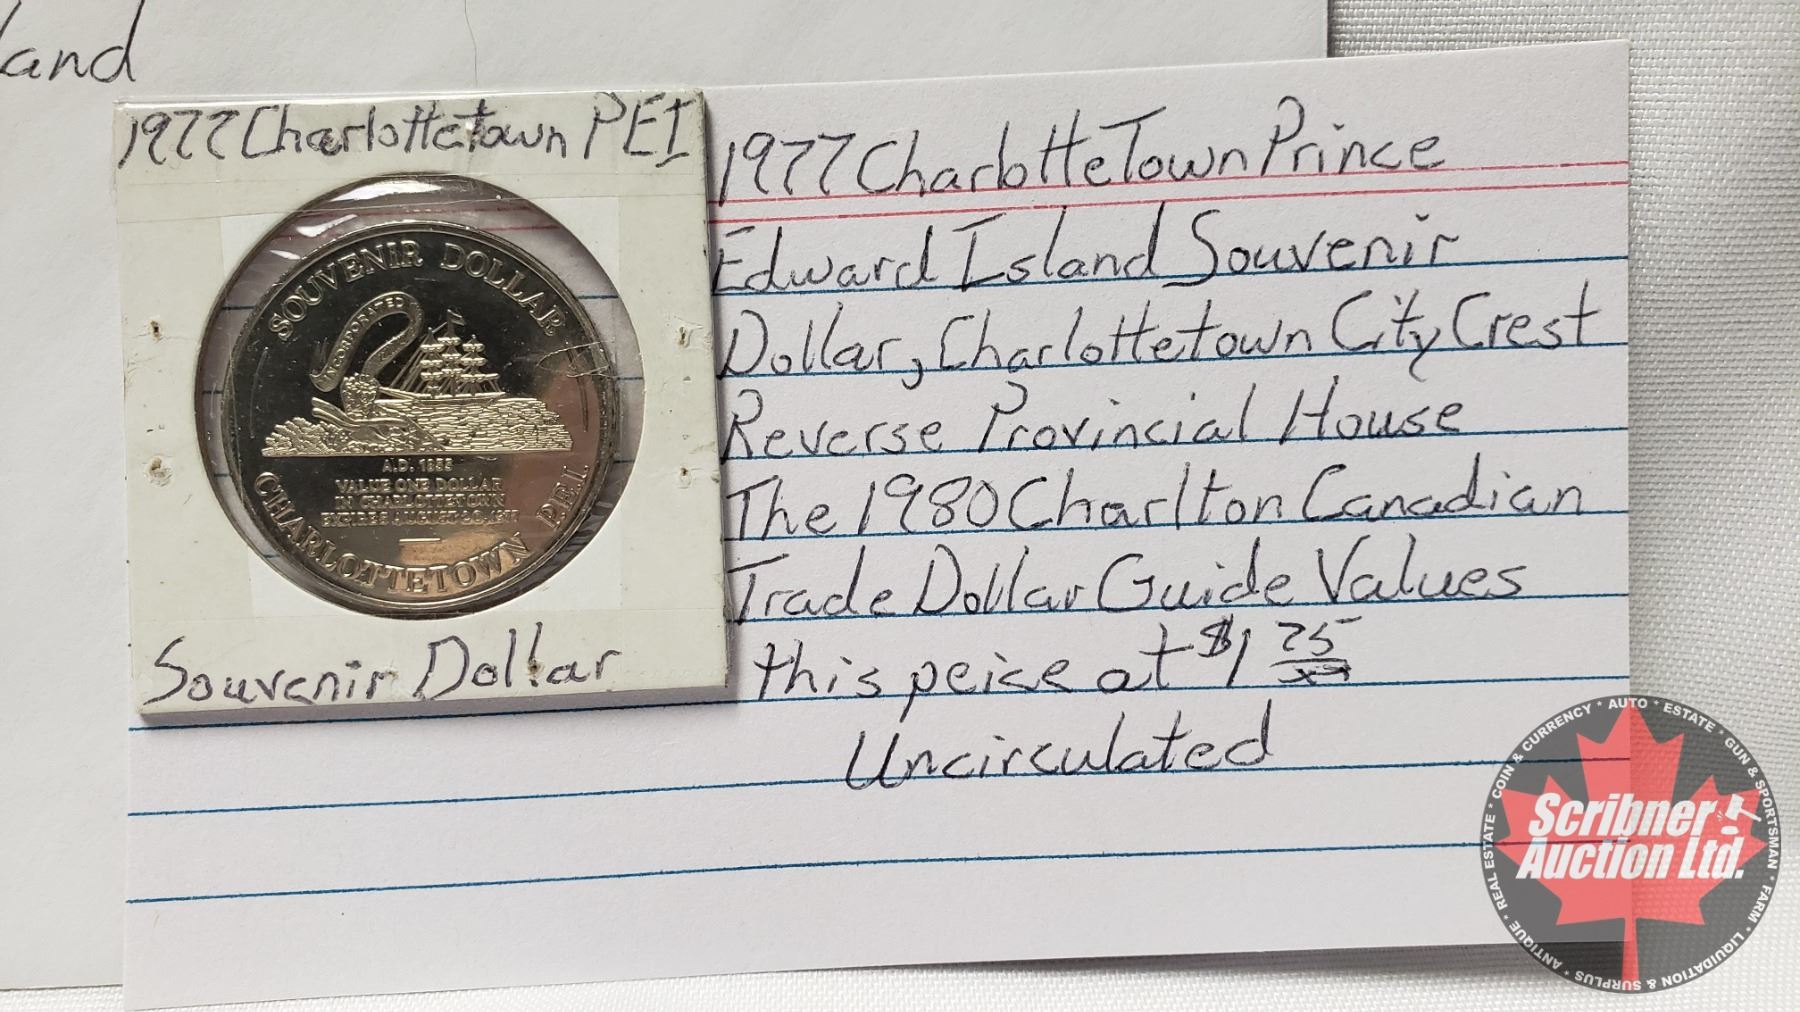 land
1977 Charlottetown PEI
SOUVENIR DOLLAR
INCORPORATED
A.D. 1855
VALUE ONE DOLLAR
IN CHARLOTTETOWN
EXPIRES AUGUST 1977
CHARLOTTETOWN P.E.I.
Souvenir Dollar
1977 CharlotteTown Prince
Edward Island Souvenir
Dollar, Charlottetown City Crest
Reverse Provincial House
The 1980 Charlton Canadian
Trade Dollar Guide Values
this peice at $1 75
xx
Uncirculated
REAL ESTATE * COIN & CURRENCY * AUTO * ESTATE * GUN & SPORTSMAN * FARM * LIQUIDATION & SURPLUS * ANTIQUE *
Scribner
Auction Ltd.